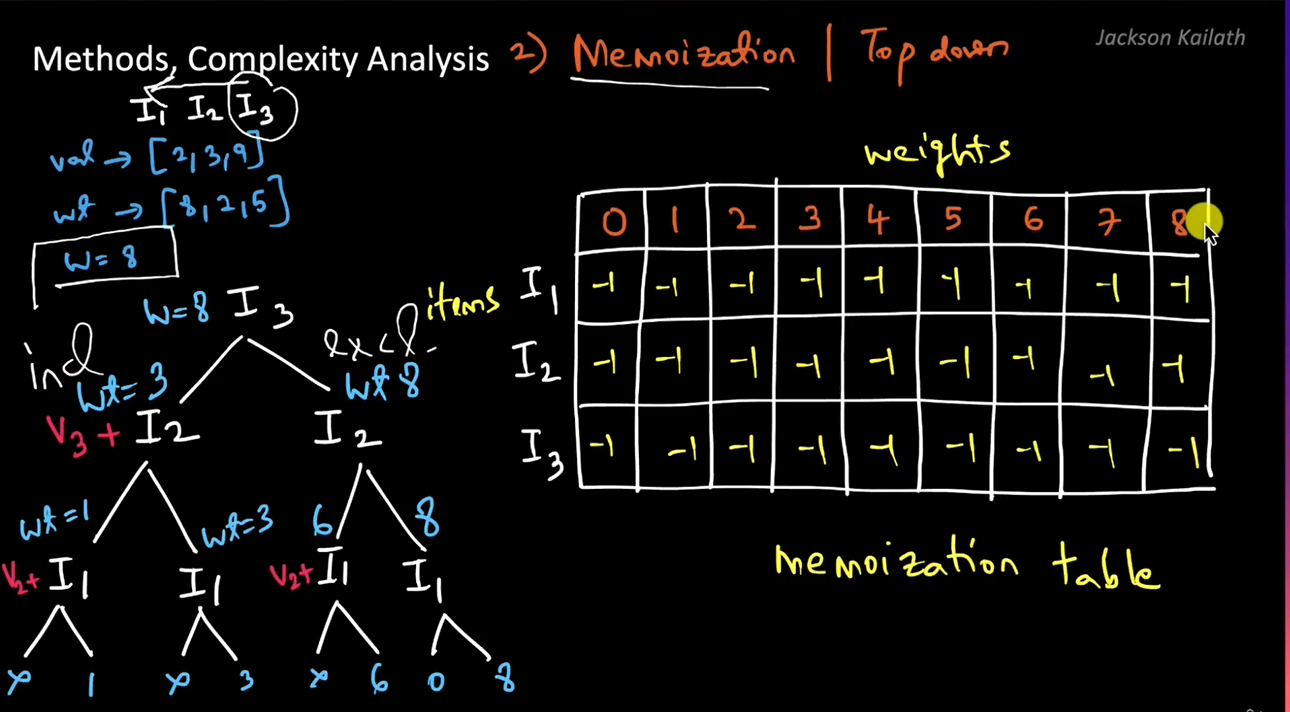 Methods, Complexity Analysis 2) Memoization | Top down
Jackson Kailath
I1 I2 I3
val → [2, 3, 9]
wt → [8, 2, 5]
W = 8
W=8 I3
incl
excl.
wt=3
wt 8
V3 + I2
I2
wt=1
wt=3
6
8
V2+ I1
I1
V2+ I1
I1
x 1 x 3 x 6 0 8
weights
0 1 2 3 4 5 6 7 8
items
I1 -1 -1 -1 -1 -1 -1 -1 -1 -1
I2 -1 -1 -1 -1 -1 -1 -1 -1 -1
I3 -1 -1 -1 -1 -1 -1 -1 -1 -1
memoization table